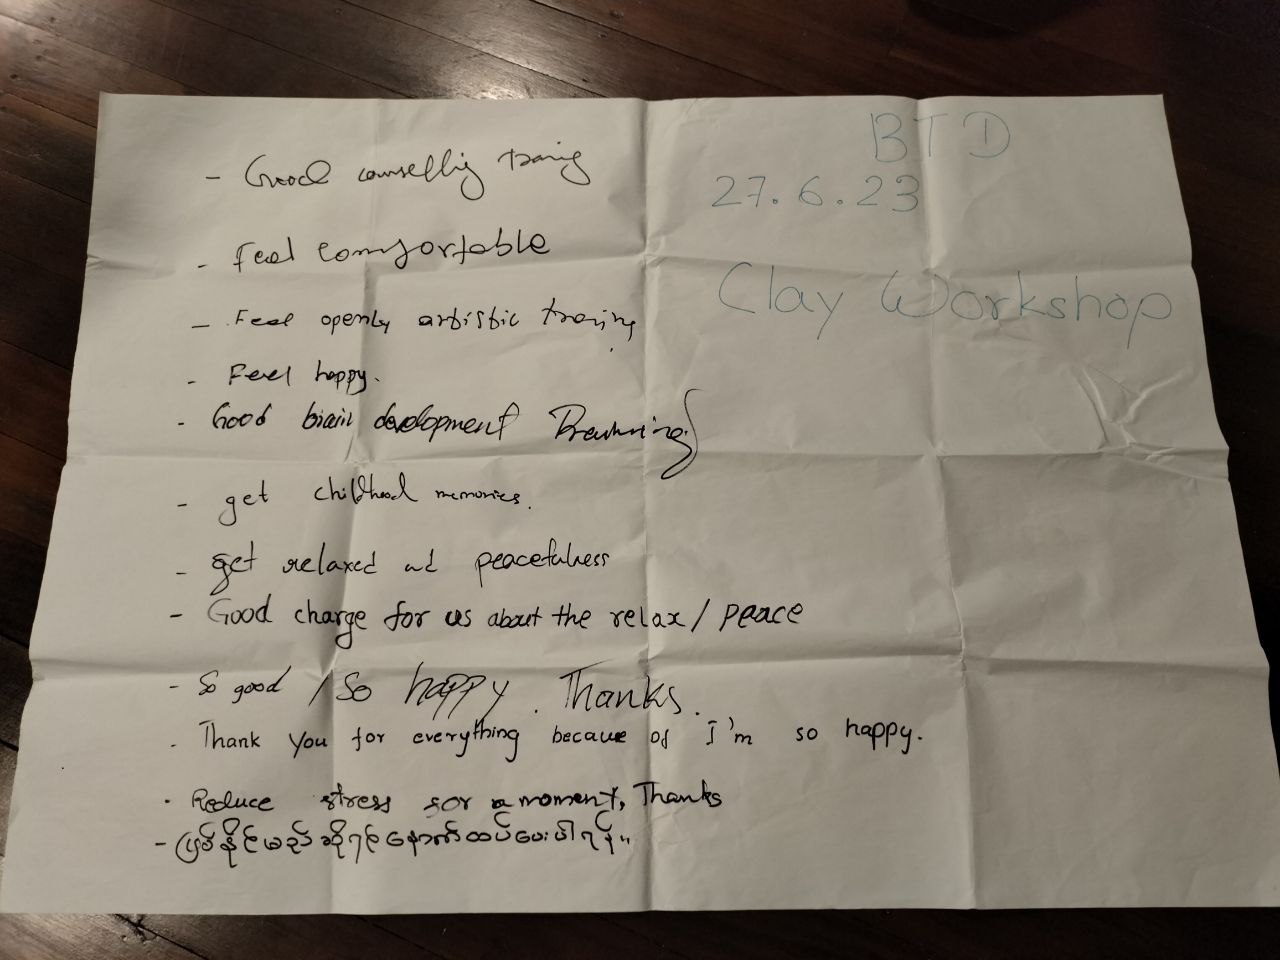 BTD
27.6.23
Clay Workshop
- Good counsellig traing
- Feel comfortable
- Feel openly artistic traning
- Feel happy.
- Good brain development
- get childhood memories.
- get relaxed and peacefulness
- Good charge for us about the relax / peace
- So good / So happy. Thanks.
- Thank you for everything because of I'm so happy.
- Reduce stress for a moment, Thanks
- ဖြစ်နိုင်မည်ဆိုရင် နောက်ထပ်ပေးပါရန်။